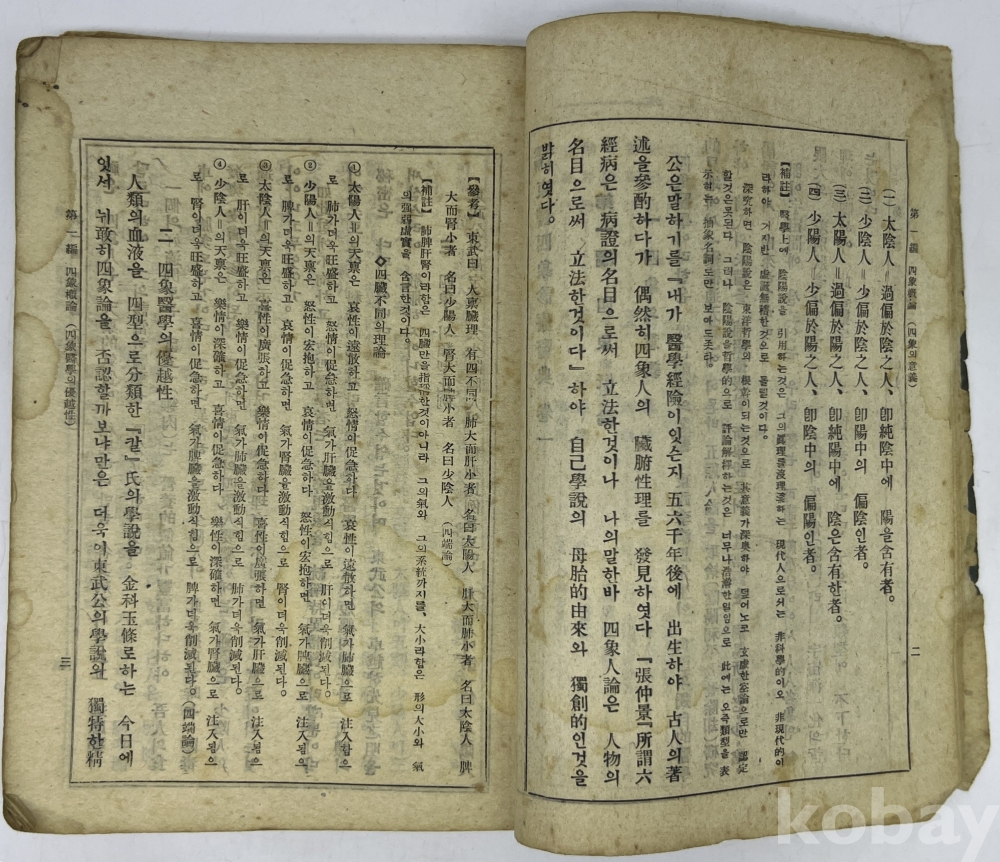 第一編 四象概論 (四象의意義)
二
(一) 太陰人=過偏於陰之人、卽純陰中에 陽을含有者。
(二) 少陰人=少偏於陰之人、卽陽中의 偏陰인者。
(三) 太陽人=過偏於陽之人、卽純陽中에 陰은含有한者。
(四) 少陽人=少偏於陽之人、卽陰中의 偏陽인者。
【補註】 醫學上에 陰陽說을 引用하는것은 그의眞理를沒理濩하는 現代人으로서는 非科學的이오 非現代的이
라하야 거지반 虛誕無稽한것으로 돌릴것이다。
深究하면 陰陽說은 東洋哲學의 根幹이되는것으로 其意義가深奧하야 덮어노코 支虛한空論으로만 認定
할것은못된다 그러나 陰陽說을哲學的으로 評論解釋하는것은 너무나浩瀚한원임으로 此에는오즉類型을 表
示하는 抽象名詞로만 보아도조타。
公은말하기를『내가 醫學經險이잇슨지 五六千年後에 出生하야 古人의著
述을參酌하다가 偶然히四象人의 臟腑性理를 發見하엿다 『張仲景』所謂六
經病은 病證의名目으로써 立法한것이나 나의말한바 四象人論은 人物의
名目으로써 立法한것이다』하야 自己學說의 母胎的由來와 獨創的인것을
밝히엿다。
【參考】 東武曰 人稟臟理 有四不同 肺大而肝小者 名曰太陽人 肝大而肺小者 名曰太陰人 脾
大而腎小者 名曰少陽人 腎大而脾小者 名曰少陰人 (四端論)
【補註】 肺脾肝腎이라함은 四臟만을指稱한것이아니라 그의氣와 그의系統까지를、大小라함은 形의大小와 氣
의强弱虛實을 含言한것이다。
◇四臟不同의理論
① 太陽人=의天稟은 哀性이遠散하고 怒情이促急하다 哀性이遠散하면 氣가肺臟으로 注入함으
로 肺가더욱旺盛하고 怒情이促急하면 氣가肝臟을激動식힘으로 肝이더욱削減된다。
② 少陽人=의天稟은 怒性이宏抱하고 哀情이促急하다 怒性이宏抱하면 氣가脾臟으로 注入됨으
로 脾가더욱旺盛하고 哀情이促急하면 氣가腎臟을激動식힘으로 腎이더욱削減된다。
③ 太陰人=의天稟은 喜性이廣張하고 樂情이促急하다 喜性이廣張하면 氣가肝臟으로 注入됨으
로 肝이더욱旺盛하고 樂情이促急하면 氣가肺臟을激動식힘으로 肺가더욱削減된다。
④ 少陰人=의天稟은 樂情이深確하고 喜情이促急하다 樂性이深確하면 氣가腎臟으로 注入됨으
로 腎이더욱旺盛하고 喜情이促急하면 氣가脾臟을激動식힘으로 脾가더욱削減된다。(四端論)
二 四象醫學의優越性
人類의血液을 四型으로分類한『칼』氏의學說을。金科玉條로하는 今日에
잇서 뉘敢히四象論을 否認할까보냐만은 더욱여東武公의學說의 獨特한精
第一編 四象槪論 (四象醫學의優越性)
三
kobay